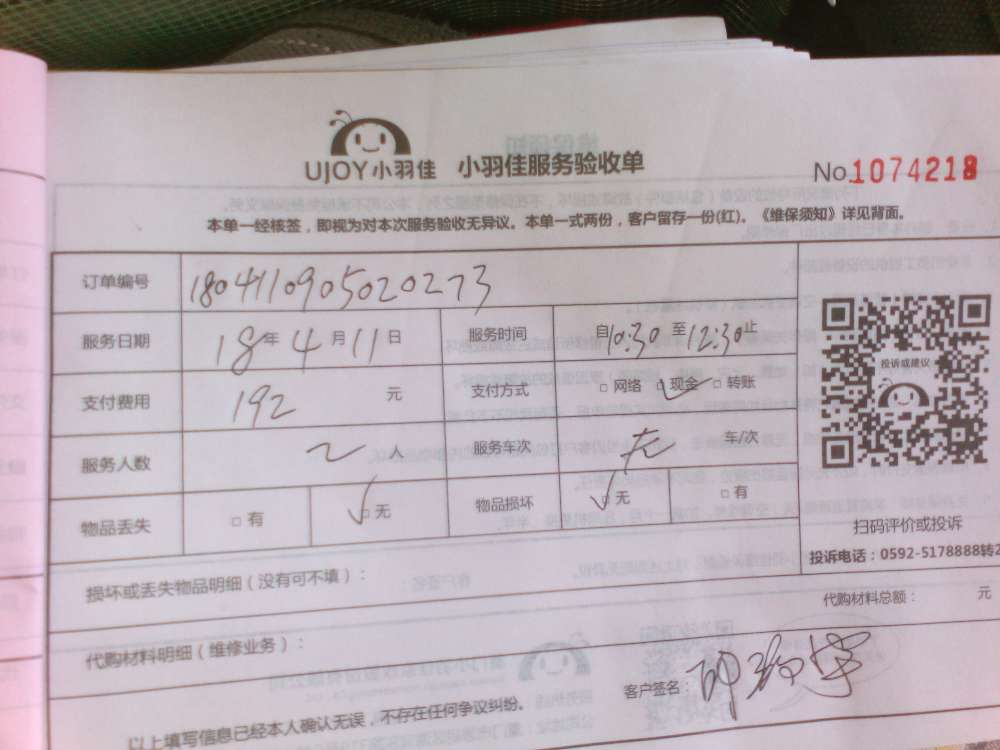 UJOY小羽佳 小羽佳服务验收单 No.1074218
本单一经核签，即视为对本次服务验收无异议。本单一式两份，客户留存一份(红)。《维保须知》详见背面。
订单编号 1804110905020273
服务日期 18年4月11日 服务时间 自10:30至12:30止
投诉或建议
支付费用 192 元 支付方式 □网络 ☑现金 □转账
服务人数 2 人 服务车次 无 车/次
物品丢失 □有 ☑无 物品损坏 ☑无 □有
扫码评价或投诉
投诉电话：0592-5178888转2
损坏或丢失物品明细（没有可不填）：
代购材料总额： 元
代购材料明细（维修业务）：
客户签名：
以上填写信息已经本人确认无误，不存在任何争议纠纷。